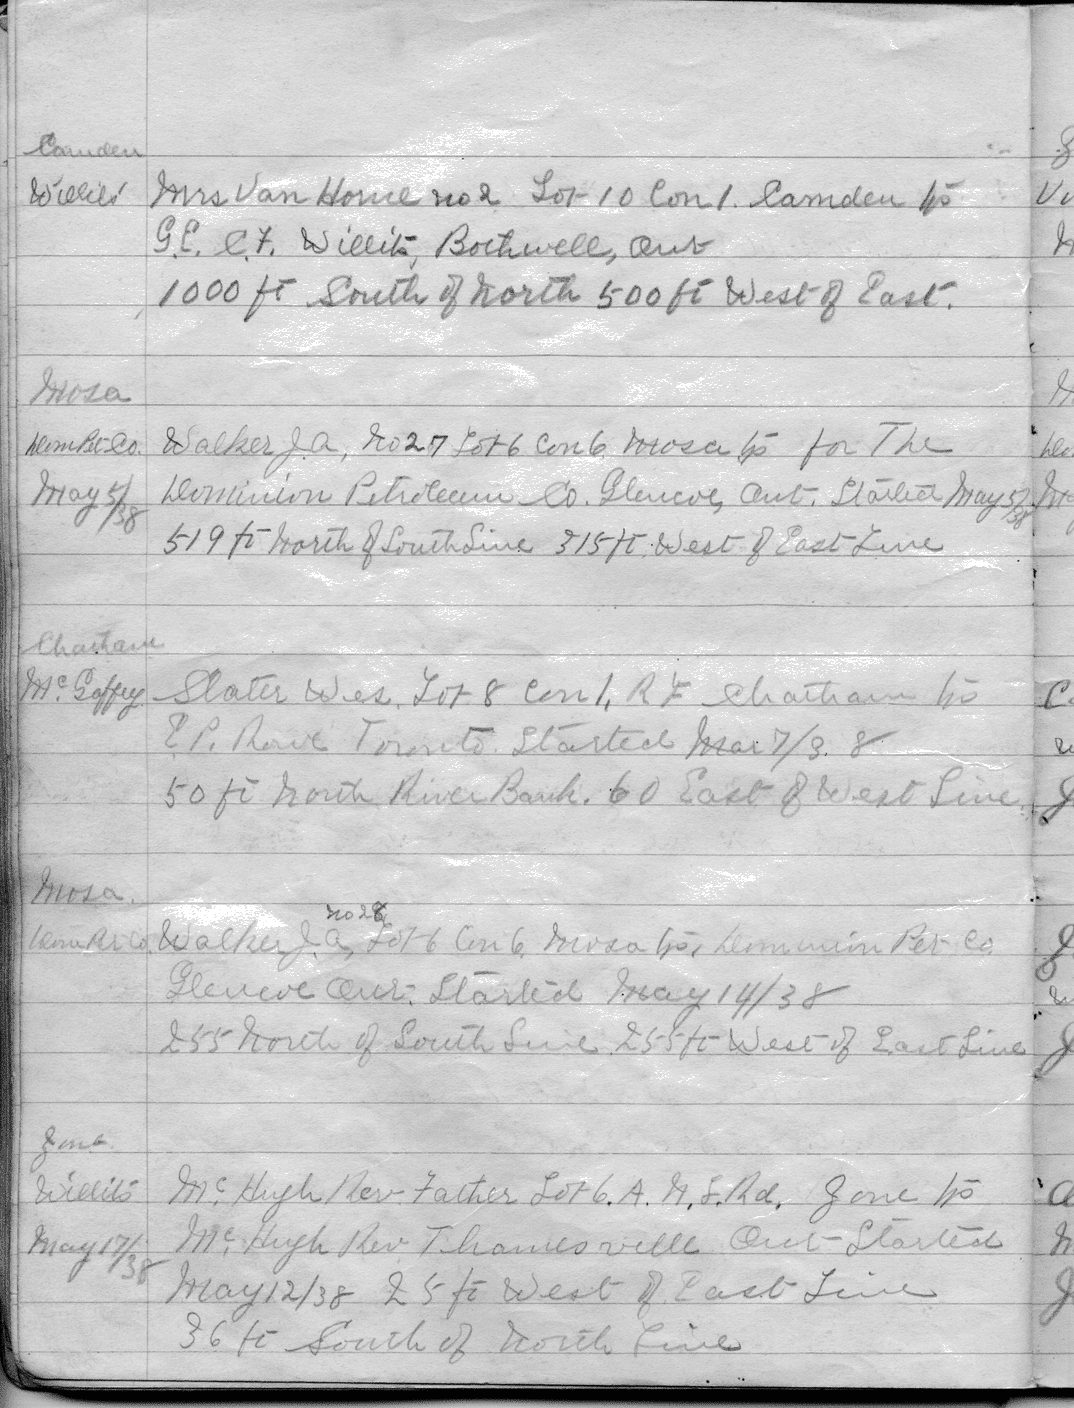 Camden
Willits Mrs Van Horne no 2 Lot 10 Con 1. Camden tp
G.E. C.F. Willits, Bothwell, Ont
1000 ft South of North 500 ft West of East.
Mosa
Dom Pet Co. Walker J. A, No 27 Lot 6 Con 6 Mosa tp for The
May 5/38 Dominion Petroleum Co. Glencoe, Ont. Started May 5/38
519 ft North of South Line 315 ft West of East Line
Chatham
Mc Gaffey Slater Wes. Lot 8 Con 1, R F Chatham tp
E P. Rowe Toronto. Started Mar 7/38
50 ft North River Bank. 60 East of West Line
Mosa.
no 28
Dom Pet Co. Walker J. A, Lot 6 Con 6, Mosa tp, Dominion Pet Co
Glencoe Ont. Started May 14/38
255 North of South Line 255 ft West of East Line
Zone
Willits Mc Hugh Rev. Father Lot 6. A. N. L. Rd, Zone tp
May 17/38 Mc Hugh Rev Thamesville Ont Started
May 12/38 25 ft West of East Line
36 ft South of North Line